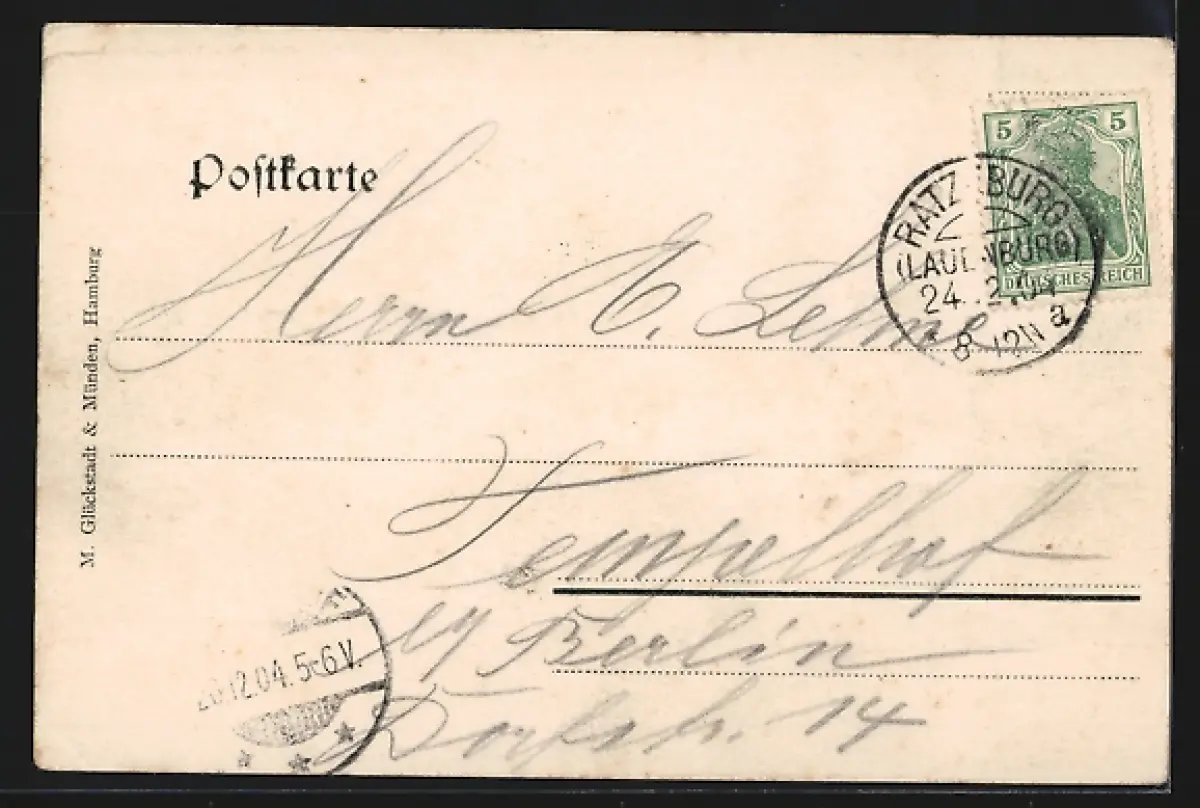 Postkarte
5 5
DEUTSCHES REICH
RATZ BURG
(LAUENBURG)
24.12.04
8-12N a
Herrn
M. Glückstadt & Münden, Hamburg
Tempelhof
Berlin
Dorfstr. 14
12.04. 5-6V.